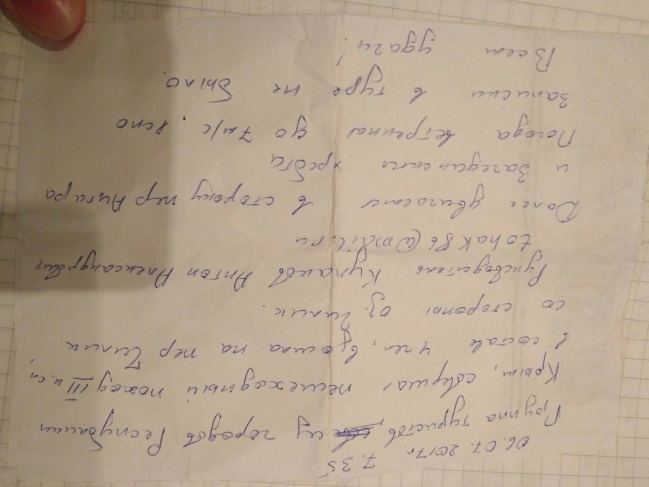 06.07.2017г. 7.35
Группа туристов из городов Республики
Крым, совершая пешеходный поход III к.сл,
в составе 4 чел, взошла на пер Чилик
со стороны оз. Чилик.
Руководитель Кулашов Антон Александрович
tohak86@mail.ru
Далее двигаемся в сторону пер
и Загедан хребта
Погода ветренная до 7м/с. ясно
Записки в туре не было.
Всем удачи!